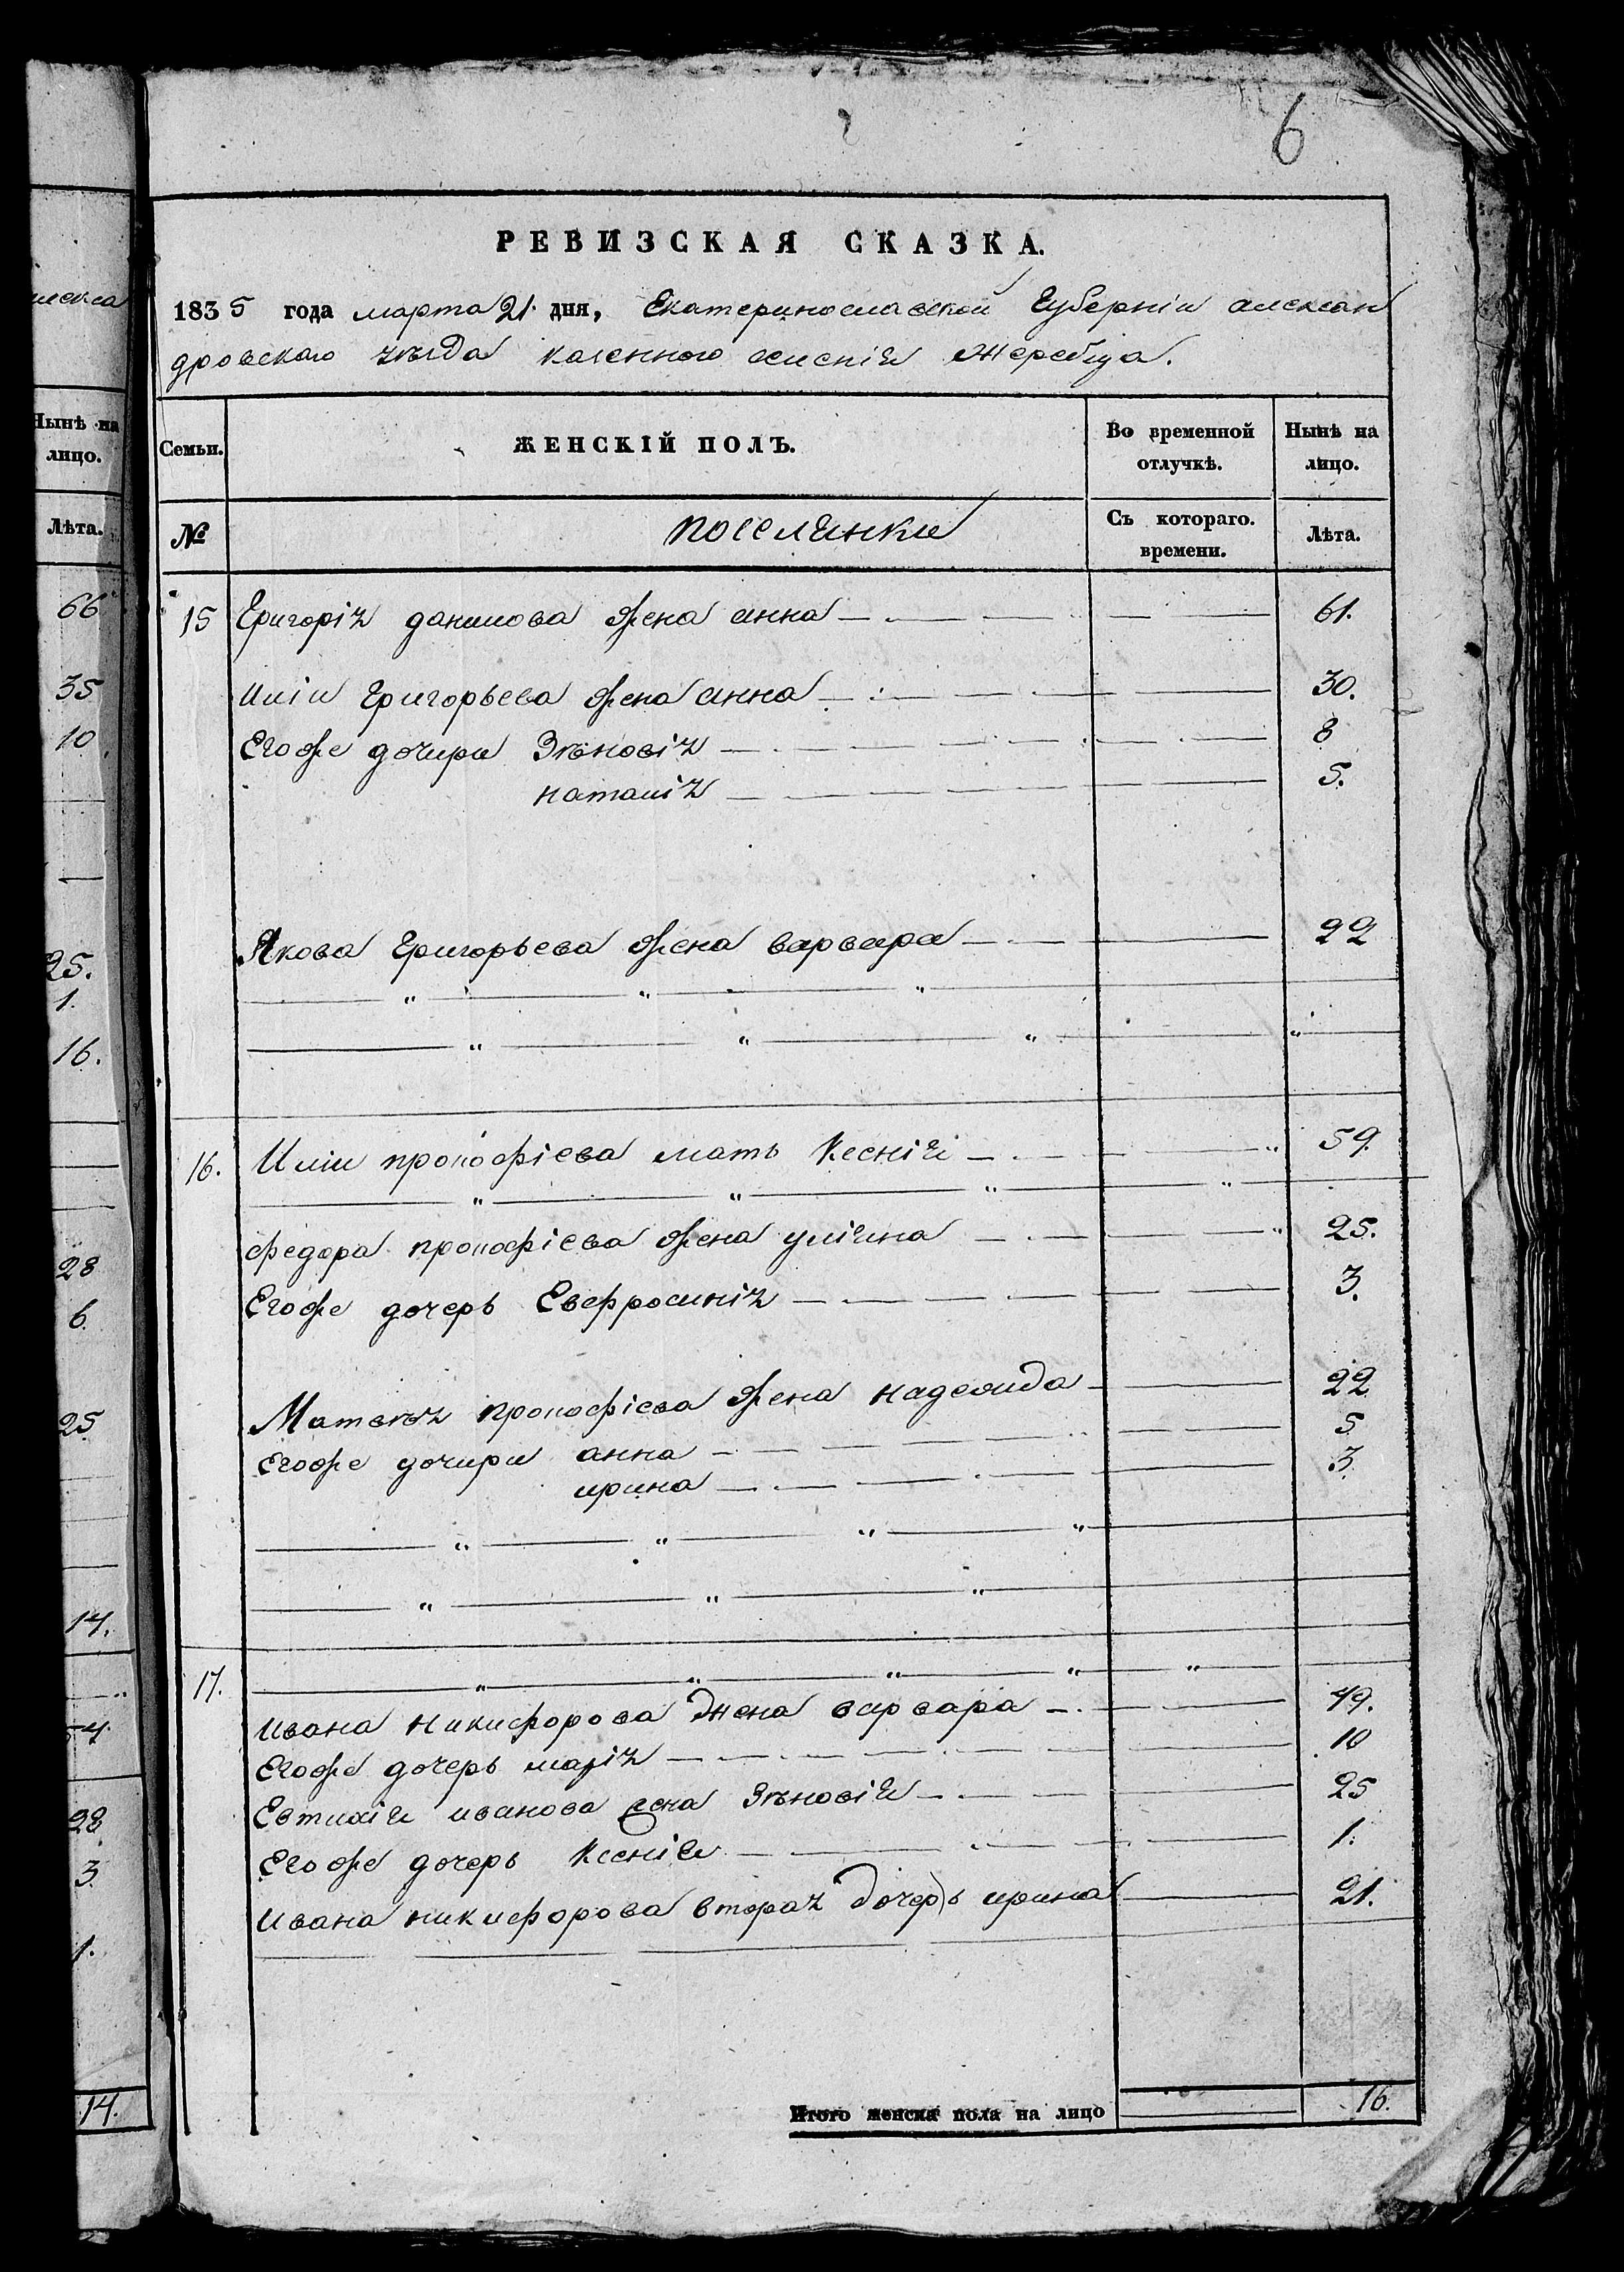 6
РЕВИЗСКАЯ СКАЗКА.
1835 года марта 21 дня, Екатеринославской Губерніи алексан
дровскаго уѣзда казенного селенія Жеребца.
Семьи.
ЖЕНСКІЙ ПОЛЪ.
Во временной отлучкѣ.
Нынѣ на лицо.
№
поселянки
Съ котораго. времени.
Лѣта.
15 Григорія данилова жена анна 61.
Иліи Григорьева жена анна 30.
Егоже дочири Зѣновія 8
наталія 5.
Якова Григорьева жена варвара 22
16. Иліи прокофіева мать Ксенія 59.
федора прокофіева жена уліяна 25.
Егоже дочерь Евфросинія 3.
Матвѣя прокофіева жена надежда 22
Егоже дочири анна 5
ирина 3.
17.
Ивана никифорова жена варвара 49.
Егоже дочерь марія 10
Евтихія иванова жена Зѣновія 25
Егоже дочерь Ксенія 1.
Ивана никифорова вторая дочерь ирина 21.
Итого женска пола на лицо 16.
Нынѣ на
лицо.
Лѣта.
66
35
10
25.
1.
16.
28
6.
25
14.
28
3
1.
14.